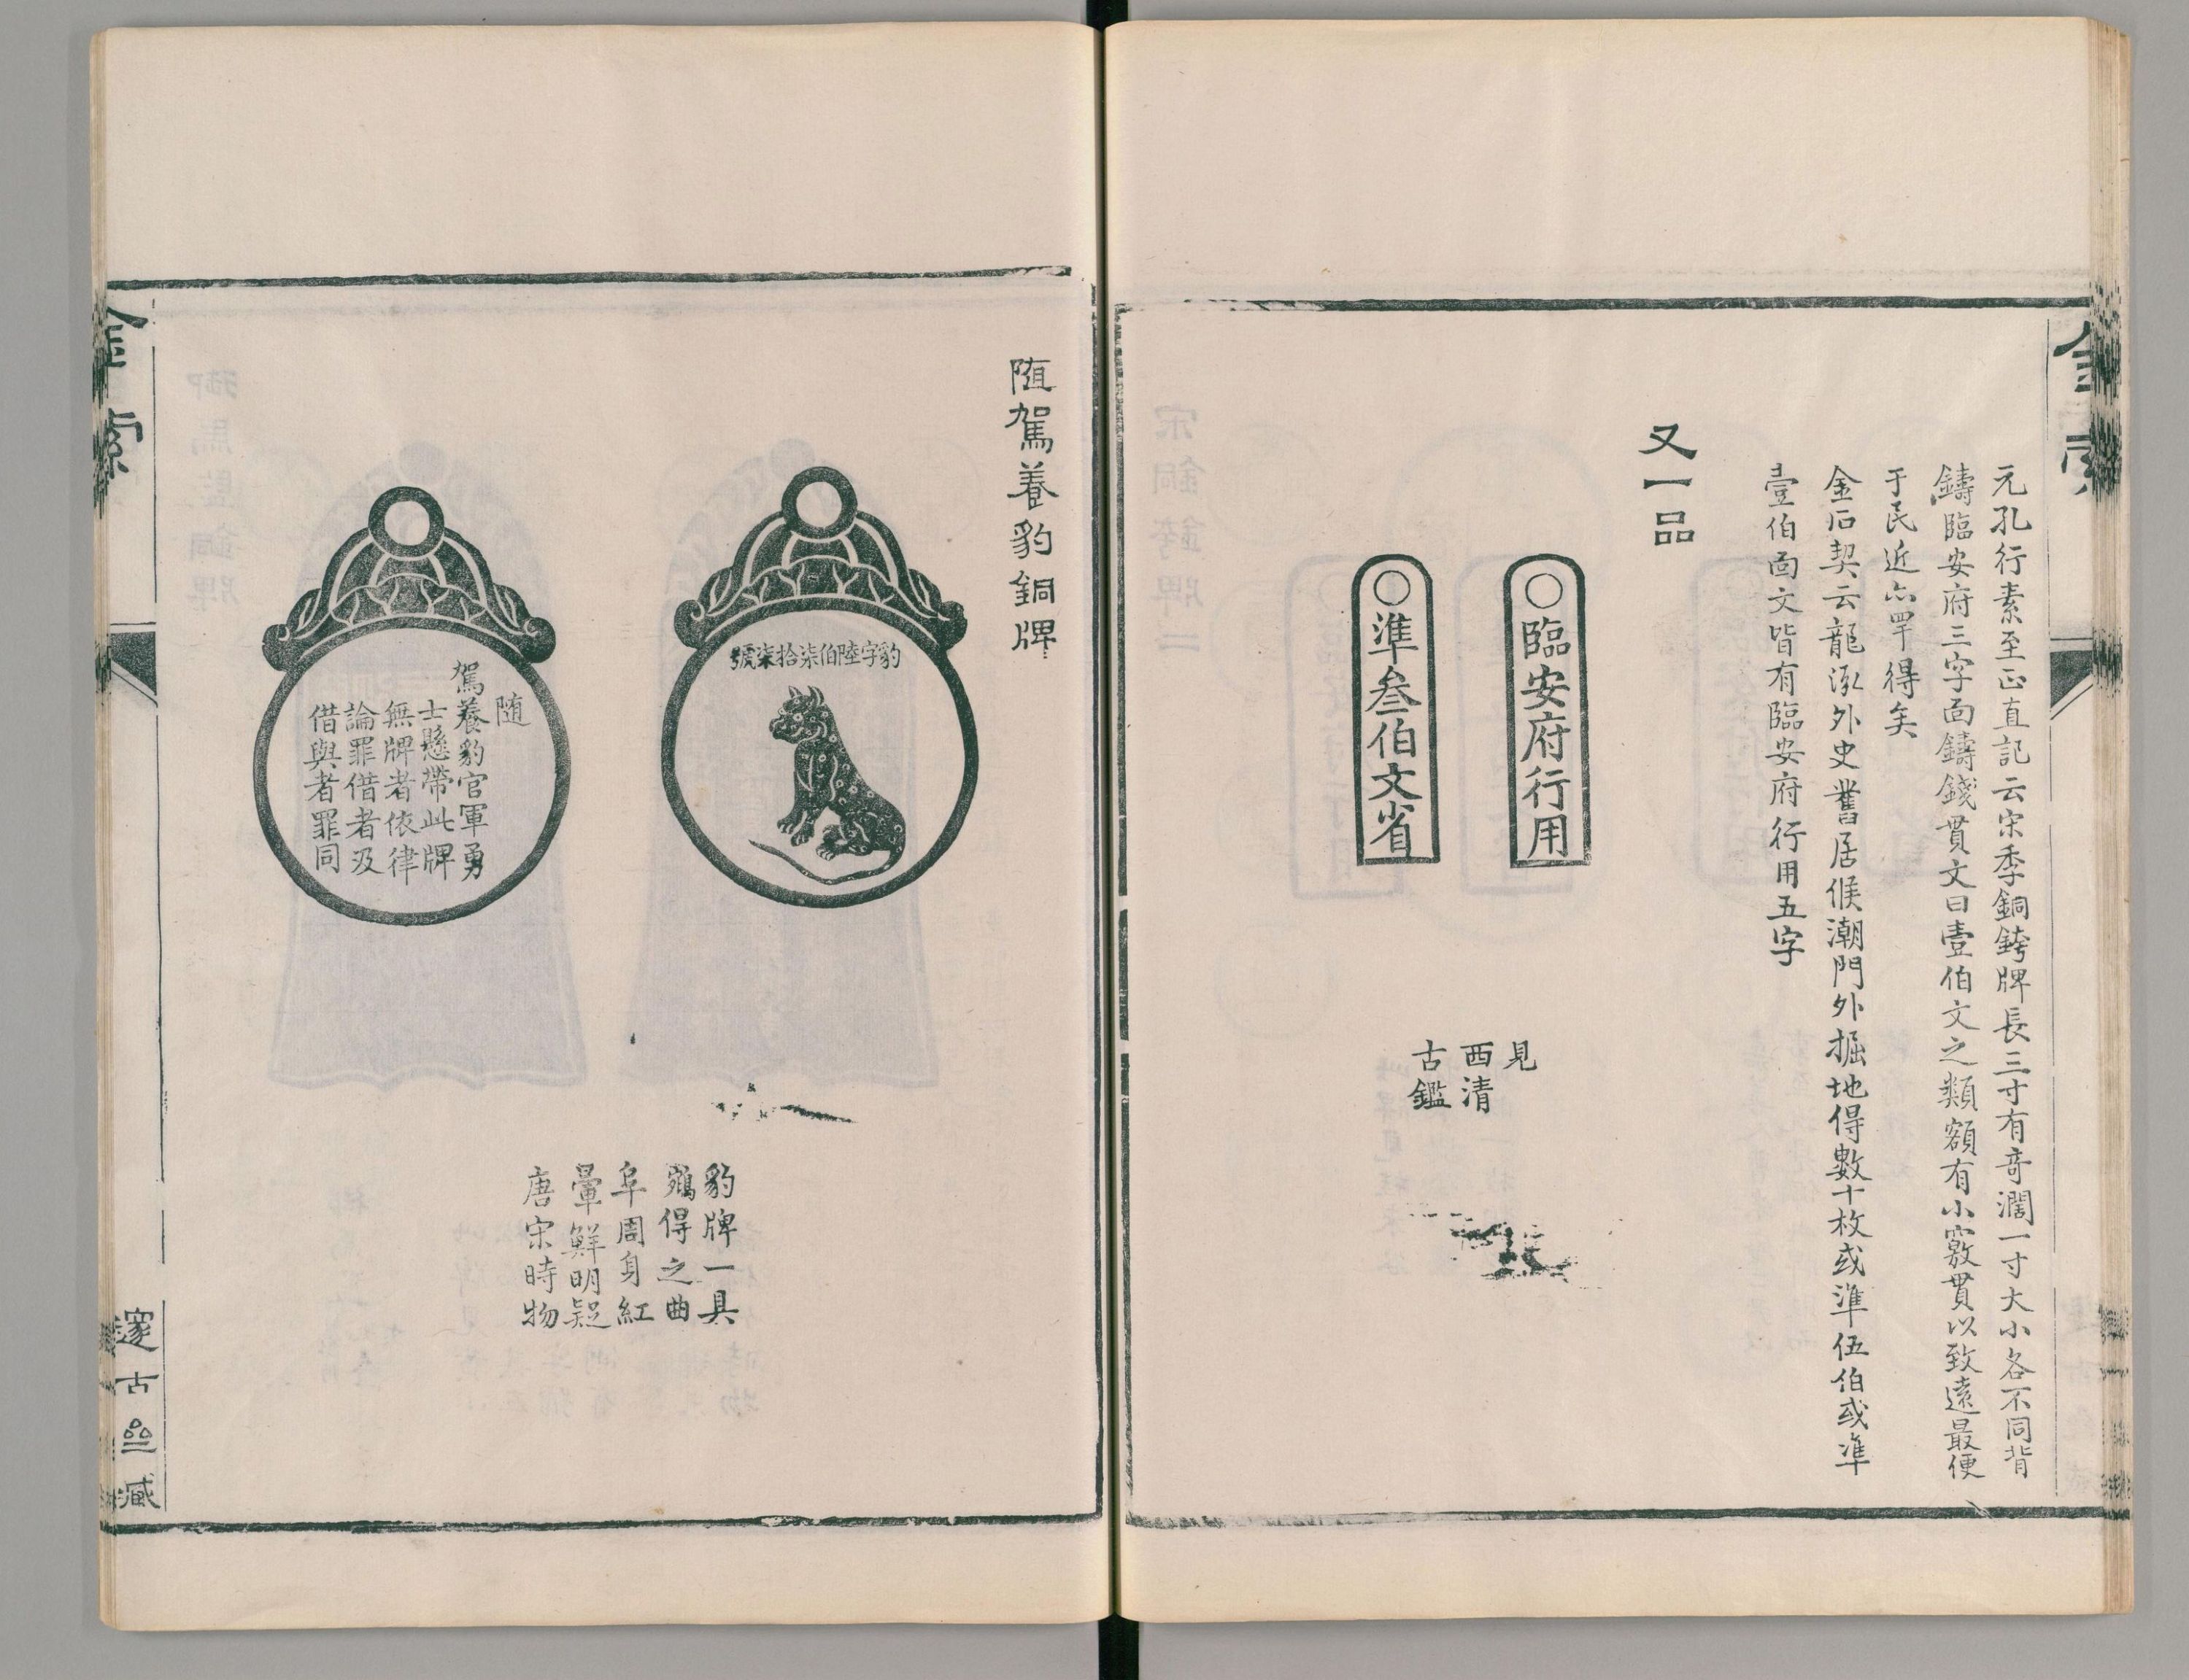 元孔行素至正直記云宋季銅銙牌長三寸有奇濶一寸大小各不同背
鑄臨安府三字面鑄錢貫文曰壹伯文之類額有小竅貫以致遠最便
于民近亦罕得矣
金石契云龍泓外史舊居候潮門外掘地得數十枚或準伍伯或準
壹伯面文皆有臨安府行用五字
又一品
臨安府行用
準叄伯文省
見
西清
古鑑
随駕養豹銅牌
豹字陸伯柒拾柒號
随
駕養豹官軍勇
士懸帶此牌
無牌者依律
論罪借者及
借與者罪同
豹牌一具
鵷得之曲
阜周身紅
暈鮮明疑
唐宋時物
金索
邃古齋藏